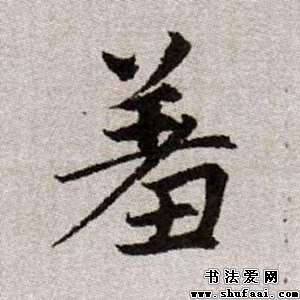 羞
书法爱网
www.shufaai.com